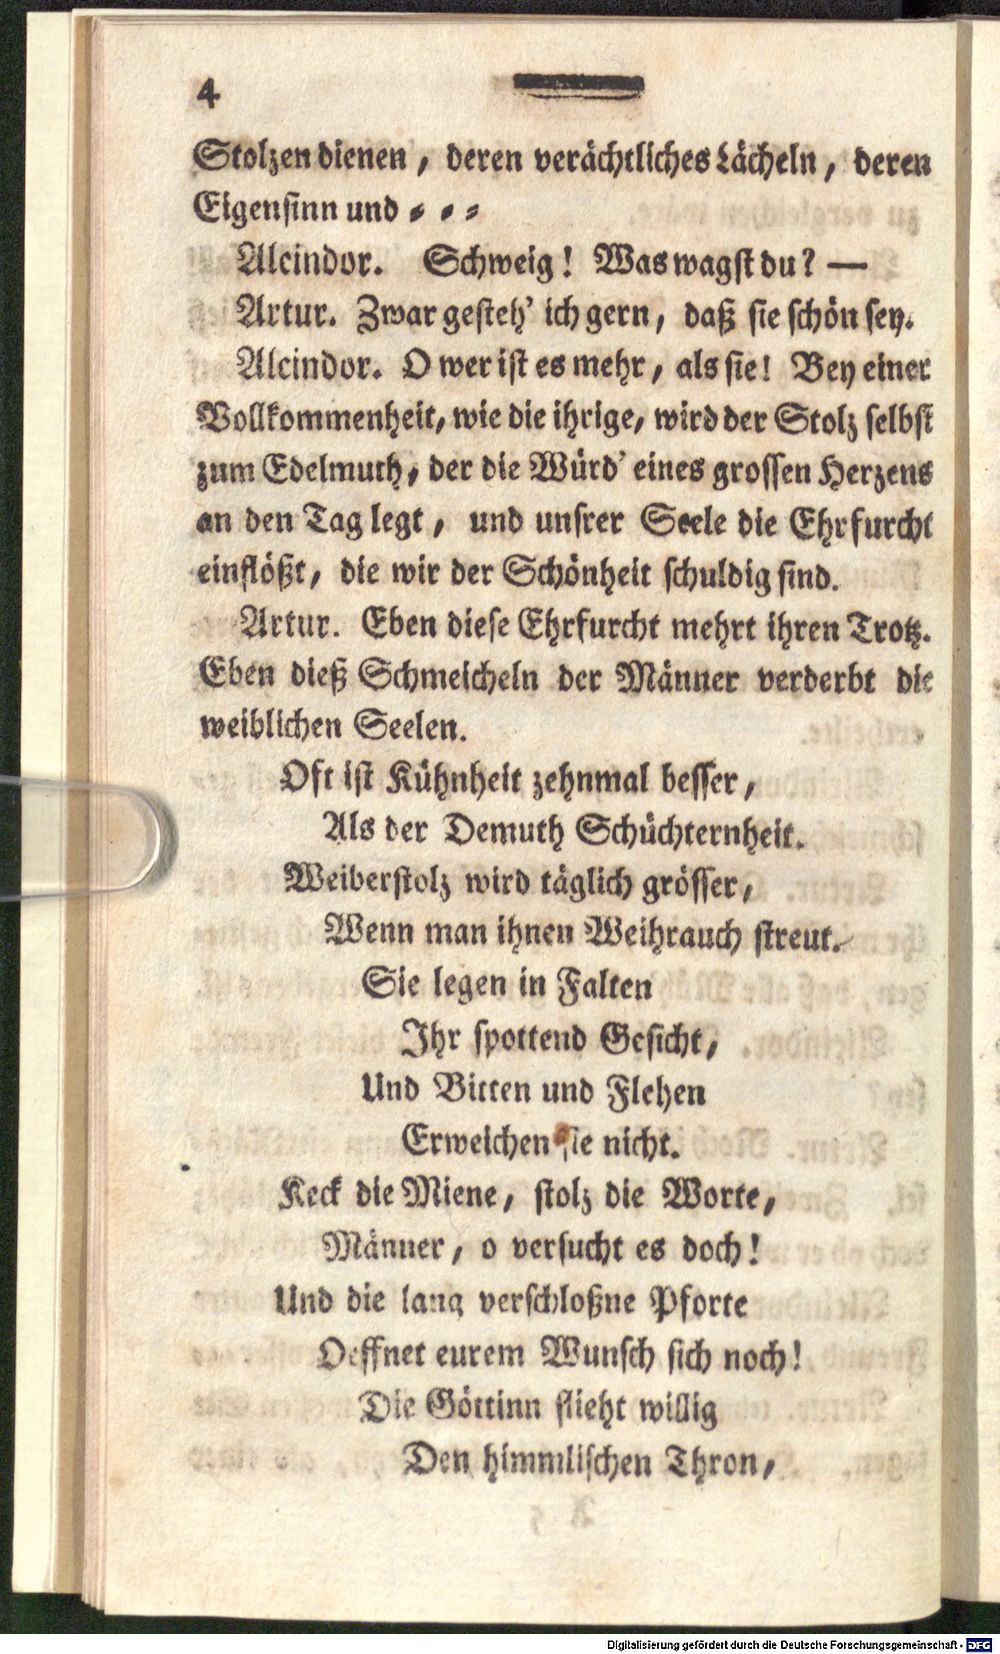 4
Stolzen dienen, deren verächtliches Lächeln, deren
Eigensinn und = = =
Alcindor. Schweig! Was wagst du? —
Artur. Zwar gesteh' ich gern, daß sie schön sey.
Alcindor. O wer ist es mehr, als sie! Bey einer
Vollkommenheit, wie die ihrige, wird der Stolz selbst
zum Edelmuth, der die Würd' eines grossen Herzens
an den Tag legt, und unsrer Seele die Ehrfurcht
einflößt, die wir der Schönheit schuldig sind.
Artur. Eben diese Ehrfurcht mehrt ihren Trotz.
Eben dieß Schmeicheln der Männer verderbt die
weiblichen Seelen.
Oft ist Kühnheit zehnmal besser,
Als der Demuth Schüchternheit.
Weiberstolz wird täglich grösser,
Wenn man ihnen Weihrauch streut.
Sie legen in Falten
Ihr spottend Gesicht,
Und Bitten und Flehen
Erweichen sie nicht.
Keck die Miene, stolz die Worte,
Männer, o versucht es doch!
Und die lang verschloßne Pforte
Oeffnet eurem Wunsch sich noch!
Die Göttinn flieht willig
Den himmlischen Thron,
Digitalisierung gefördert durch die Deutsche Forschungsgemeinschaft - DFG